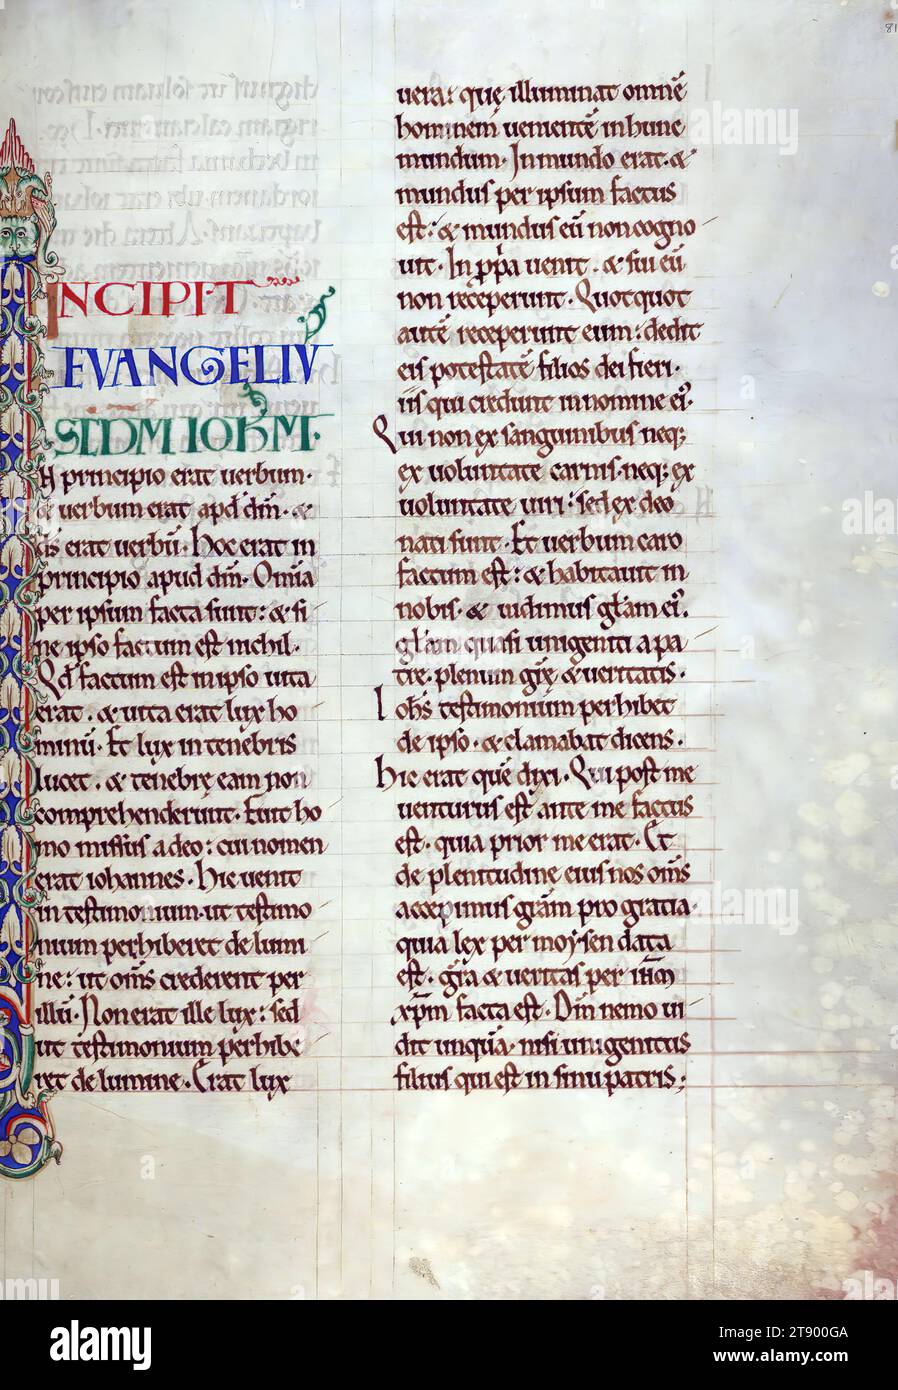 81
INCIPIT
EVANGELIU
SEDM IOHM.
N principio erat uerbum.
& uerbum erat apd dm̄. &
ds̄ erat uerbū. Hoc erat in
principio apud dm̄. Om̄ia
per ipsum facta sunt: & si
ne ipso factum est nichil.
Qd̄ factum est in ipso uita
erat. & uita erat lux ho
minū. Et lux in tenebris
lucet. & tenebrę eam non
comprehenderunt. Fuit ho
mo missus a deo: cui nomen
erat iohannes. Hic uenit
in testimonium. ut testimo
nium perhiberet de lumi
ne: ut om̄s crederent per
illū. Non erat ille lux: sed
ut testimonium perhibe
ret de lumine. Erat lux
uera: quę illuminat omnē
hominem uenientē in hunc
mundum. In mundo erat. &
mundus per ipsum factus
est: & mundus eū non cogno
uit. In pp̄a uenit. & sui eū
non receperunt. Quotquot
autē receperunt eum: dedit
eis potestatē filios dei fieri.
iis qui credunt in nomine ei᾿.
Qui non ex sanguinibus neq;
ex uoluntate carnis. neq; ex
uoluntate uiri: sed ex deo
nati sunt. Et uerbum caro
factum est: & habitauit in
nobis. & uidimus glām ei᾿.
glām quasi unigeniti a pa
tre. plenum grę̄ & ueritatis.
Ioh̄s testimonium perhibet
de ipso. & clamabat dicens.
Hic erat quē dixi. Qui post me
uenturus est ante me factus
est. quia prior me erat. Et
de plenitudine eius nos om̄s
accepimus grām pro gratia.
quia lex per moysen data
est. grā & ueritas per ih̄m
xp̄m facta est. Dm̄ nemo ui
dit unquā. nisi unigenitus
filius qui est in sinu patris;
alamy
2T90OGA